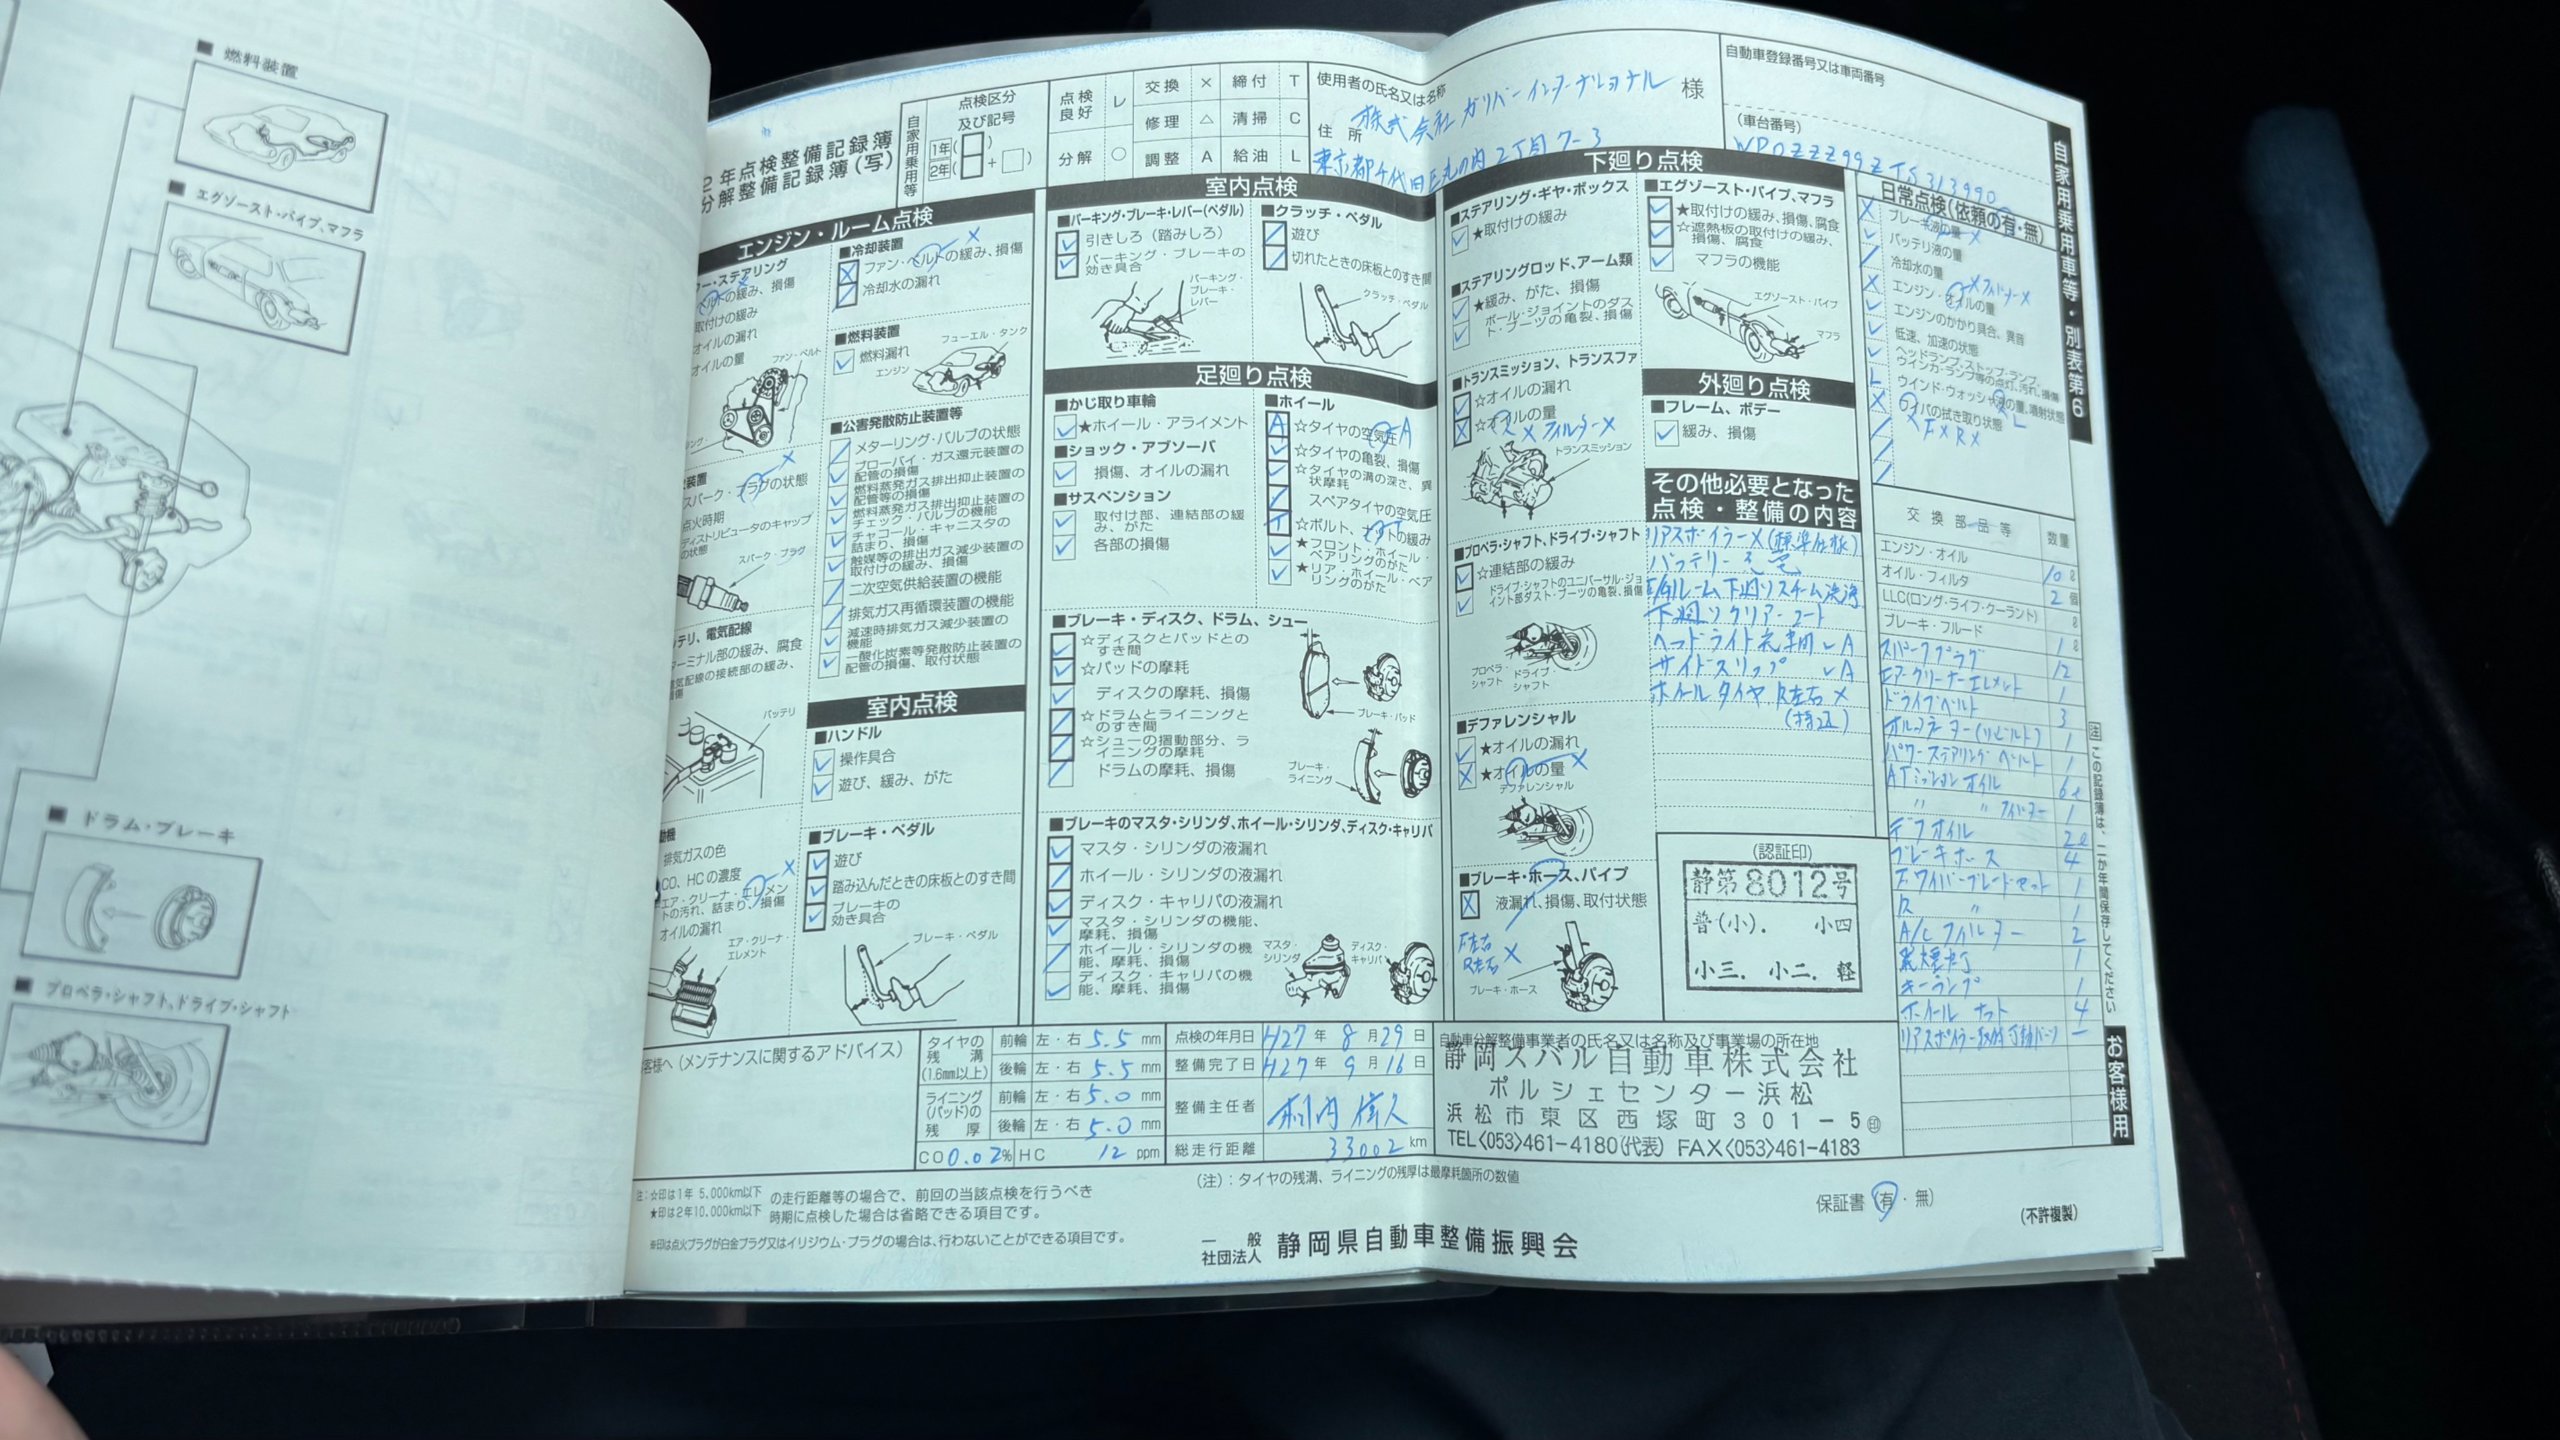 ■ 燃料装置
■ エグゾースト・パイプ、マフラ
■ ドラム・ブレーキ
■ プロペラ・シャフト、ドライブ・シャフト
2年点検整備記録簿
分解整備記録簿(写)
自家用乗用等
点検区分
及び記号
1年( )
2年( + )
点検良好 レ 交換 × 締付 T
修理 △ 清掃 C
分解 ○ 調整 A 給油 L
使用者の氏名又は名称
株式会社 ガリバーインターナショナル 様
住所
東京都千代田区丸の内2丁目7-3
自動車登録番号又は車両番号
(車台番号)
WP0ZZZ99ZTS313990
自家用乗用車等・別表第6
エンジン・ルーム点検
ベルトの緩み、損傷
取付けの緩み
オイルの漏れ
オイルの量
ファン・ベルト
スパーク・プラグの状態
点火時期
ディストリビュータのキャップの状態
スパーク・プラグ
テリ、電気配線
ターミナル部の緩み、腐食
気配線の接続部の緩み、
バッテリ
排気ガスの色
CO、HCの濃度
エア・クリーナ・エレメントの汚れ、詰まり、損傷
オイルの漏れ
エア・クリーナ・エレメント
■冷却装置
ファン・ベルトの緩み、損傷
冷却水の漏れ
■燃料装置
フューエル・タンク
燃料漏れ
エンジン
■公害発散防止装置等
メターリング・バルブの状態
ブローバイ・ガス還元装置の配管の損傷
燃料蒸発ガス排出抑止装置の配管等の損傷
燃料蒸発ガス排出抑止装置のチェック・バルブの機能
チャコール・キャニスタの詰まり、損傷
触媒等の排出ガス減少装置の取付けの緩み、損傷
二次空気供給装置の機能
排気ガス再循環装置の機能
減速時排気ガス減少装置の機能
一酸化炭素等発散防止装置の配管の損傷、取付状態
室内点検
■ハンドル
操作具合
遊び、緩み、がた
■ブレーキ・ペダル
遊び
踏み込んだときの床板とのすき間
ブレーキの効き具合
ブレーキ・ペダル
室内点検
■パーキング・ブレーキ・レバー(ペダル)
引きしろ(踏みしろ)
パーキング・ブレーキの効き具合
パーキング・ブレーキ・レバー
■クラッチ・ペダル
遊び
切れたときの床板とのすき間
クラッチ・ペダル
足廻り点検
■かじ取り車輪
★ホイール・アライメント
■ショック・アブソーバ
損傷、オイルの漏れ
■サスペンション
取付け部、連結部の緩み、がた
各部の損傷
■ホイール
A ☆タイヤの空気圧 A
☆タイヤの亀裂、損傷
☆タイヤの溝の深さ、異状摩耗
スペアタイヤの空気圧
T ☆ボルト、ナットの緩み
★フロント・ホイール・ベアリングのがた
★リア・ホイール・ベアリングのがた
■ブレーキ・ディスク、ドラム、シュー
☆ディスクとパッドとのすき間
☆パッドの摩耗
ディスクの摩耗、損傷
☆ドラムとライニングとのすき間
☆シューの摺動部分、ライニングの摩耗
ドラムの摩耗、損傷
ブレーキ・パッド
ブレーキ・ライニング
■ブレーキのマスタ・シリンダ、ホイール・シリンダ、ディスク・キャリパ
マスタ・シリンダの液漏れ
ホイール・シリンダの液漏れ
ディスク・キャリパの液漏れ
マスタ・シリンダの機能、摩耗、損傷
ホイール・シリンダの機能、摩耗、損傷
ディスク・キャリパの機能、摩耗、損傷
マスタ・シリンダ
ディスク・キャリパ
下廻り点検
■ステアリング・ギヤ・ボックス
★取付けの緩み
■ステアリングロッド、アーム類
★緩み、がた、損傷
ボール・ジョイントのダスト・ブーツの亀裂、損傷
■トランスミッション、トランスファ
☆オイルの漏れ
☆オイルの量
× フィルター×
トランスミッション
■プロペラ・シャフト、ドライブ・シャフト
☆連結部の緩み
ドライブ・シャフトのユニバーサル・ジョイント部ダスト・ブーツの亀裂、損傷
プロペラ・シャフト
ドライブ・シャフト
■デファレンシャル
★オイルの漏れ
★オイルの量
デファレンシャル
■ブレーキ・ホース、パイプ
液漏れ、損傷、取付状態
F左右
R左右 ×
ブレーキ・ホース
■エグゾースト・パイプ、マフラ
★取付けの緩み、損傷、腐食
☆遮熱板の取付けの緩み、損傷、腐食
マフラの機能
エグゾースト・パイプ
マフラ
外廻り点検
■フレーム、ボデー
緩み、損傷
その他必要となった
点検・整備の内容
リアスポイラー×(標準仕様)
バッテリー充電
E/Gルーム下廻りスチーム洗浄
下廻りクリアーコート
ヘッドライト光軸 レA
サイドスリップ レA
ホイールタイヤ R左右 ×
(持込)
(認証印)
静第8012号
普(小). 小四
小三. 小二. 軽
日常点検(依頼の有・無)
ブレーキ液の量
バッテリ液の量
冷却水の量
エンジン・オイルの量
×フィルター×
エンジンのかかり具合、異音
低速、加速の状態
ヘッドランプ、ストップ・ランプ、ウインカ・ランプ等の点灯、汚れ、損傷
ウインド・ウォッシャ液の量、噴射状態
ワイパの拭き取り状態
F× R×
交換部品等 数量
エンジン・オイル 10ℓ
オイル・フィルタ 2個
LLC(ロング・ライフ・クーラント) ℓ
ブレーキ・フルード 1ℓ
スパークプラグ 12
エアークリーナーエレメント 1
ドライブベルト 3
オルタネーター(リビルト) 1
パワーステアリングベルト 1
ATミッションオイル 6ℓ
〃 〃 フィルター 1
デフオイル 2ℓ
ブレーキホース 4
Fワイパーブレードセット 1
R 〃 1
A/Cフィルター 2
発煙灯 1
キーランプ 1
ホイールナット 4
注 この記録簿は、二か年間保存してください
お客様用
客様へ(メンテナンスに関するアドバイス)
タイヤの残溝(1.6mm以上) 前輪 左・右 5.5 mm
後輪 左・右 5.5 mm
ライニング(パッド)の残厚 前輪 左・右 5.0 mm
後輪 左・右 5.0 mm
CO 0.02% HC 12 ppm
点検の年月日 H27年 8月 29日
整備完了日 H27年 9月 16日
整備主任者
総走行距離 33002 km
自動車分解整備事業者の氏名又は名称及び事業場の所在地
静岡スバル自動車株式会社
ポルシェセンター浜松
浜松市東区西塚町301-5 印
TEL〈053〉461-4180(代表) FAX〈053〉461-4183
注:☆印は1年 5,000km以下
★印は2年10,000km以下
の走行距離等の場合で、前回の当該点検を行うべき
時期に点検した場合は省略できる項目です。
※印は点火プラグが白金プラグ又はイリジウム・プラグの場合は、行わないことができる項目です。
(注):タイヤの残溝、ライニングの残厚は最摩耗箇所の数値
保証書(有・無)
(不許複製)
一般社団法人 静岡県自動車整備振興会